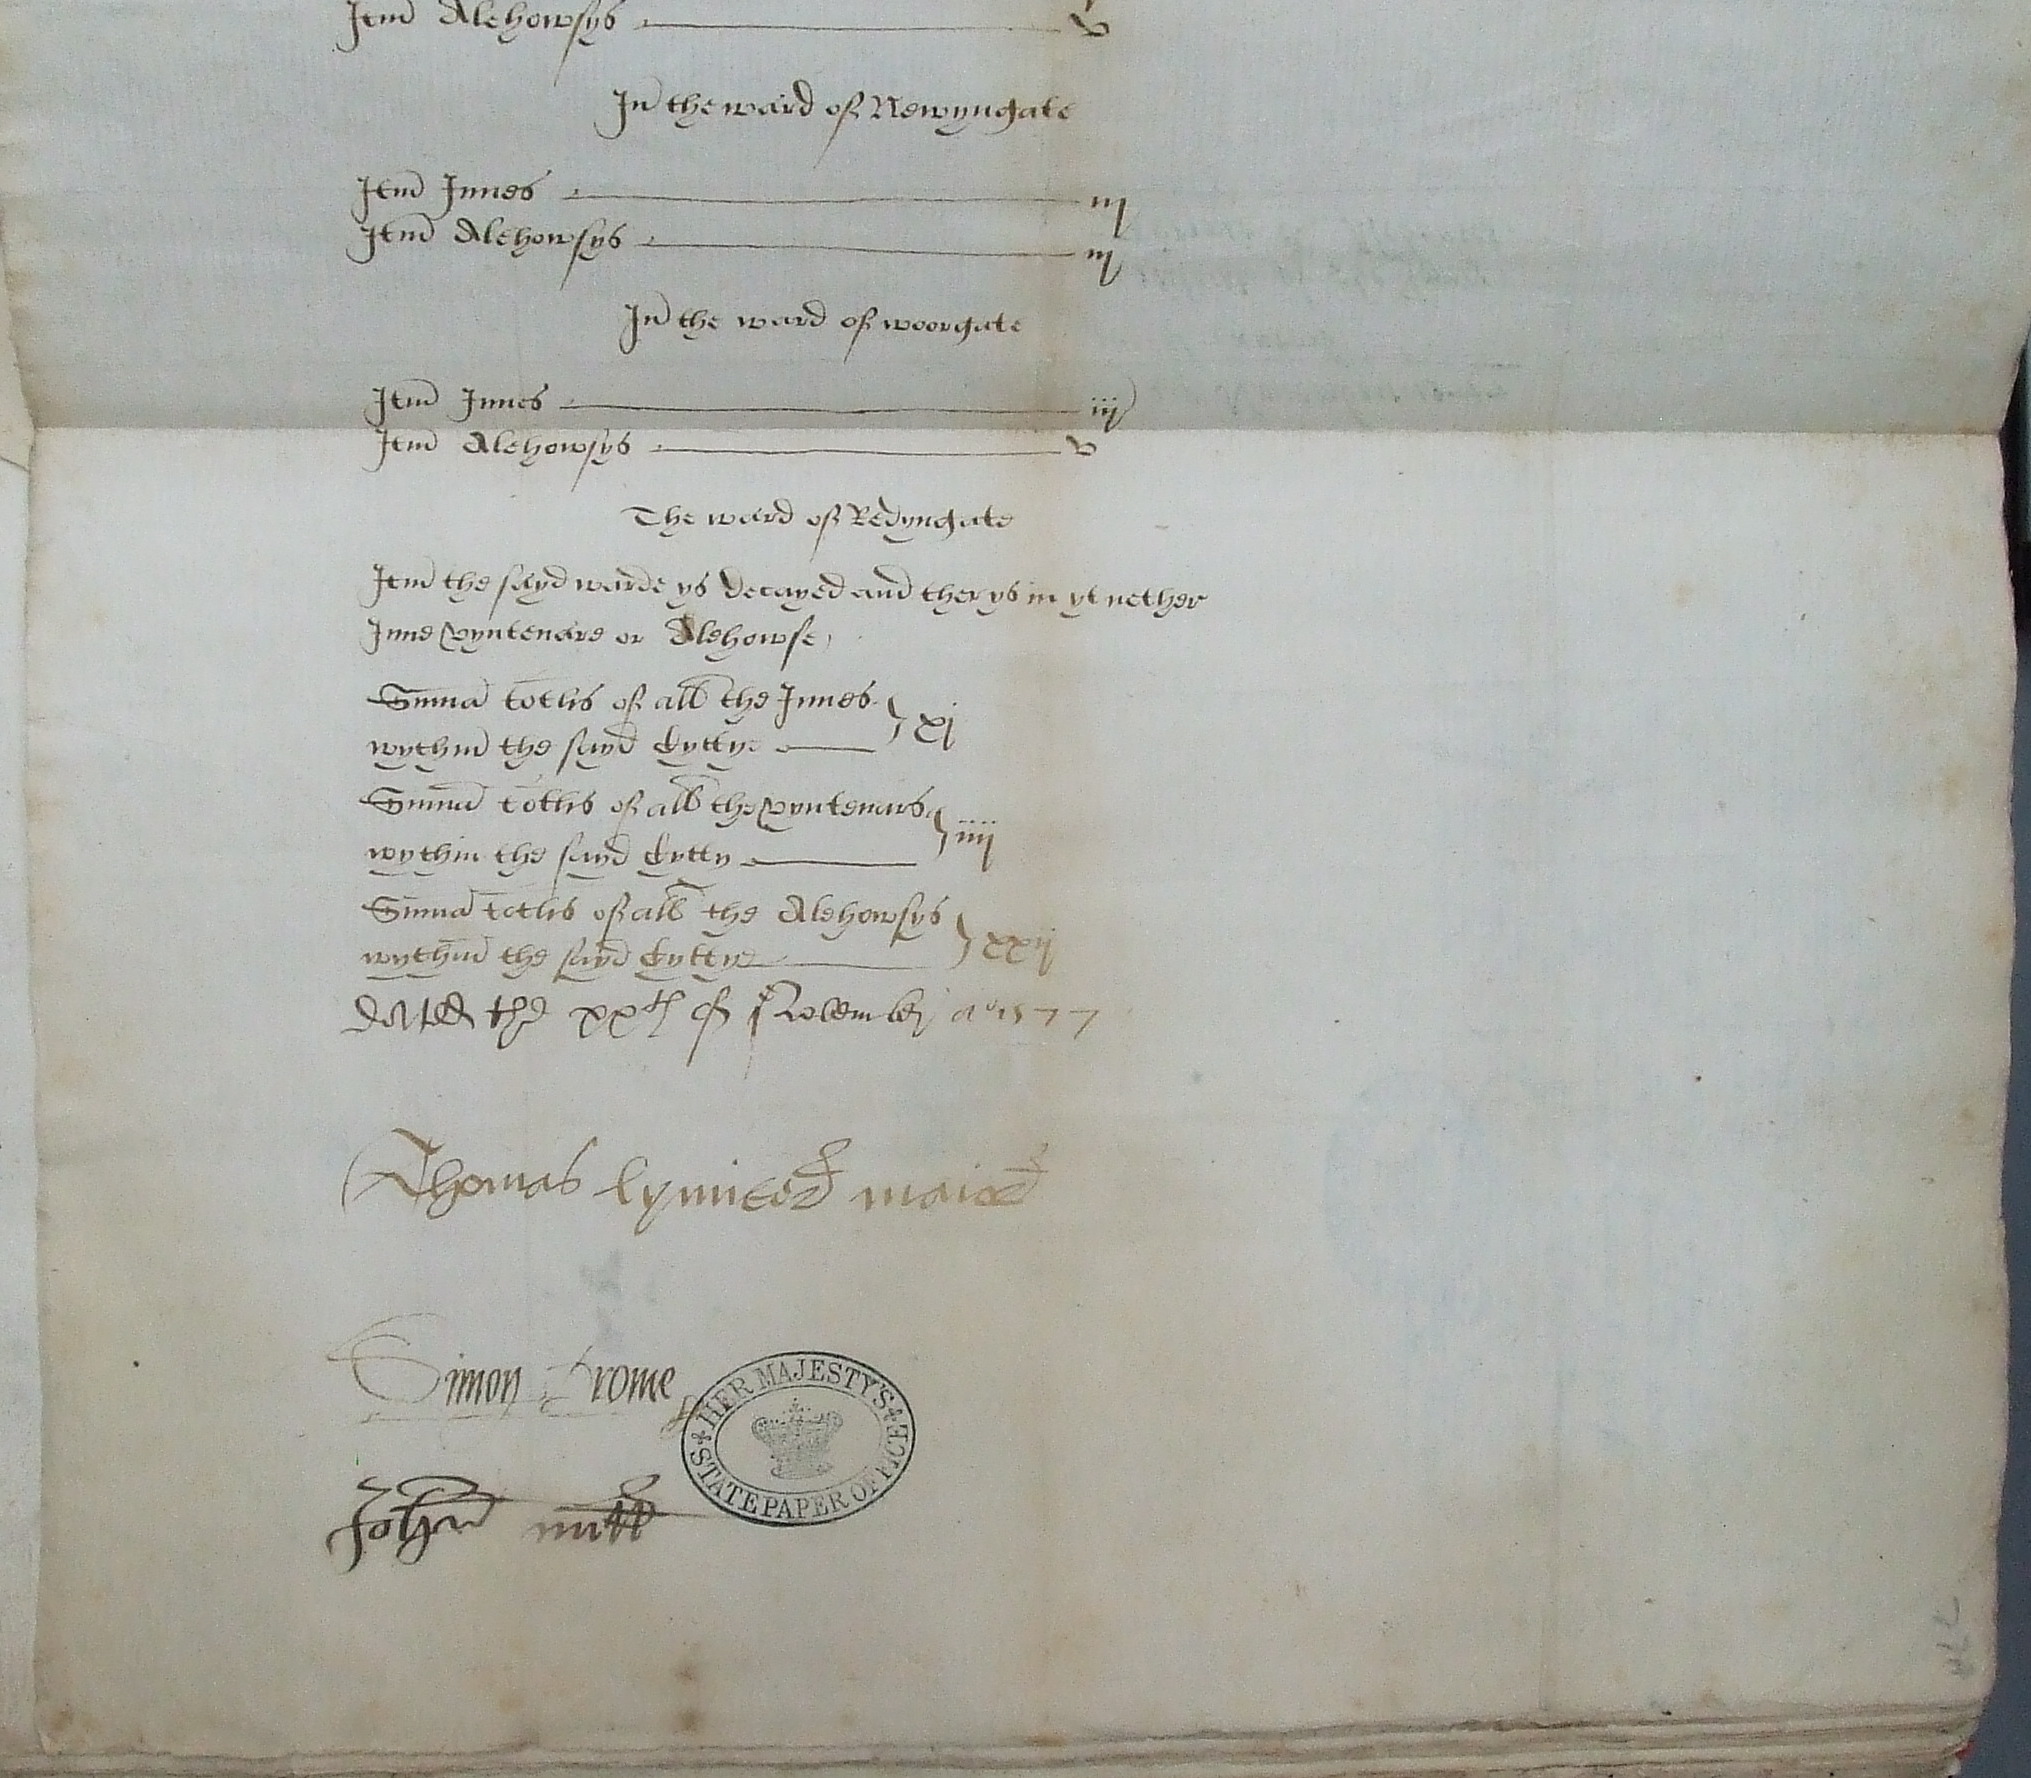 Itm Alehowsys v
In the ward of Newyngate
Itm Innes iij
Itm Alehowsys iij
In the ward of woorgate
Itm Innes iij
Itm Alehowsys v
The ward of Redyngate
Itm the sayd warde ys decayed and ther ys in yt nether
Inne vyntenare or Alehowse
Suma totlis of all the Innes
wythin the sayd Cyttye xj
Suma totlis of all the vyntenars
wythin the sayd Cytty iiij
Suma totlis of all the Alehowsys
wythin the sayd Cyttye xxij
dated the xxth of November ao 1577
Thomas maior
Simon Brome
John nutt
HER MAJESTY'S STATE PAPER OFFICE